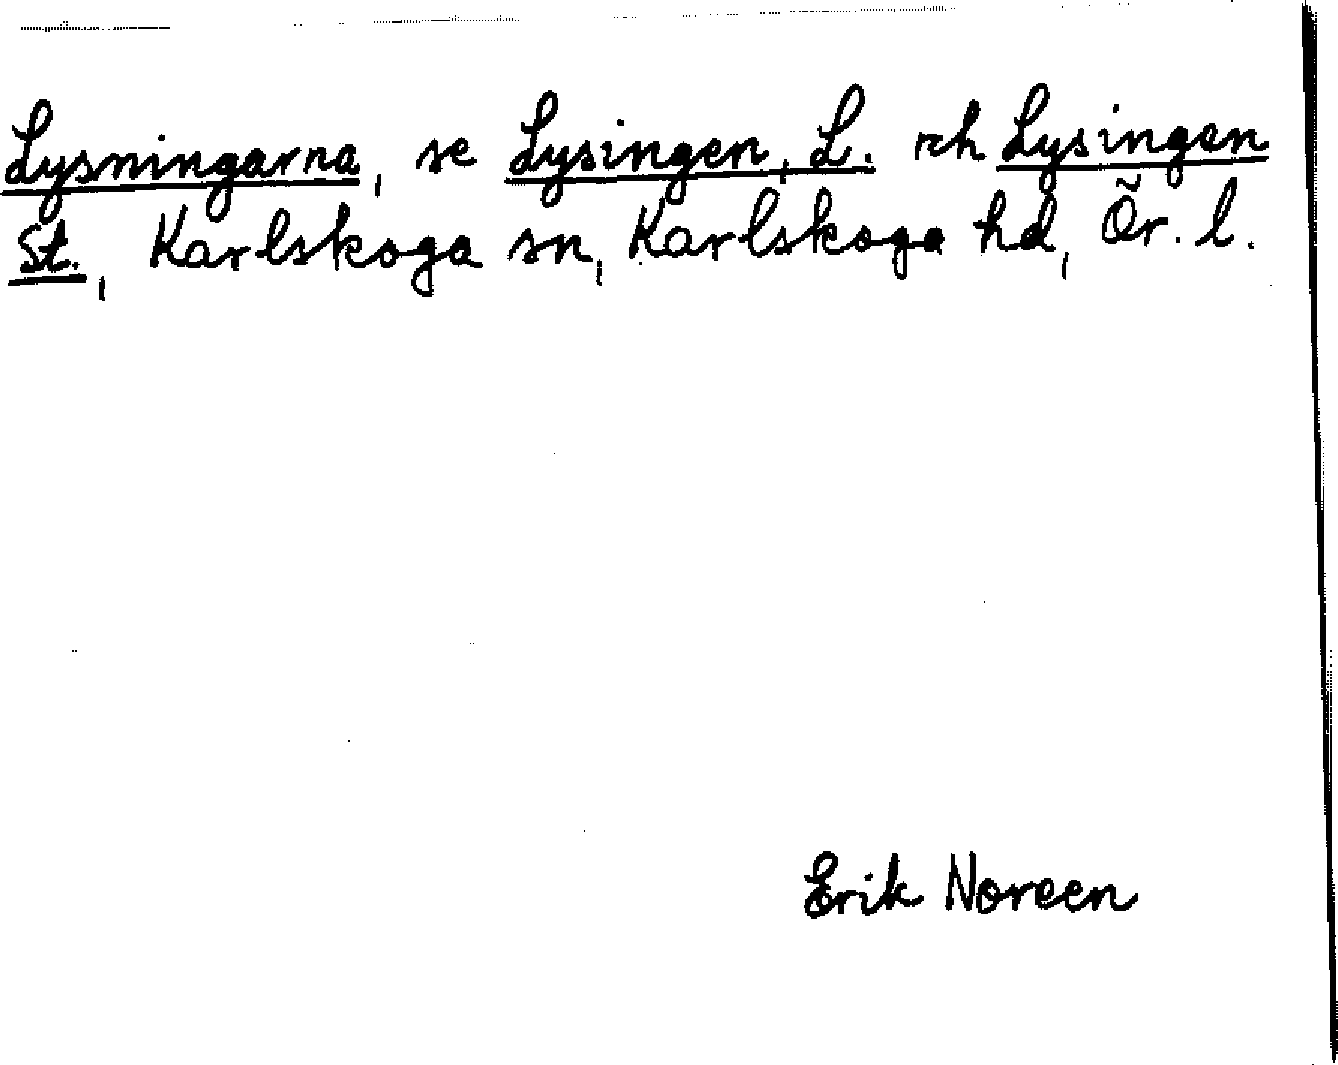 Lysningarna, se Lysingen, L. och Lysingen
St., Karlskoga sn, Karlskoga hd, Ör. l.
Erik Noreen